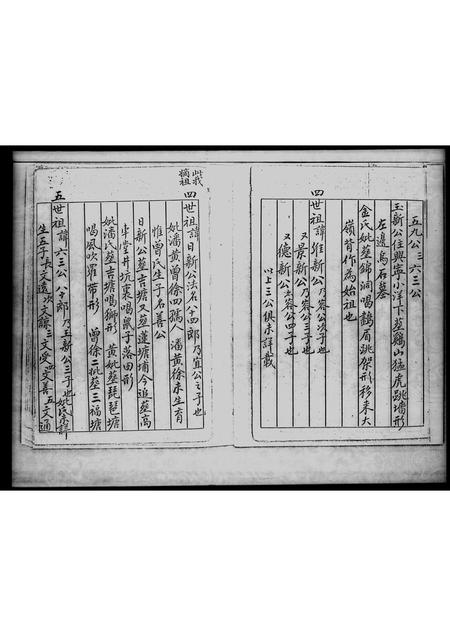 五九公三六三公
玉新公住興寧小洋下塟鷄山猛虎跳墻形
左邊烏石墓
金氏妣塟錦洞唱鵝眉跳架形移来大
嶺背作為始祖也
四世祖諱維新公乃容公次子也
又景新公乃容公三子也
又德新公乃容公四子也
以上三公俱未詳載
此我
嫡祖
四世祖諱日新公法名八十四郎乃宜公之子也
妣潘黄曾徐四孺人潘黄徐未生育
惟曾氏生子名善公
日新公塟吉塘又塟蓮塘埔今追塟高
坐堂井坑裏唱鼠子落田形
妣潘氏塟吉塘唱獅形黄妣塟琵琶塘
唱風吹羅帶形 曾徐二妣塟三福塘
五世祖諱六三公八十郎乃玉新公三子也妣氏諱
生五子長文遠次文諒三文受四文善五文通